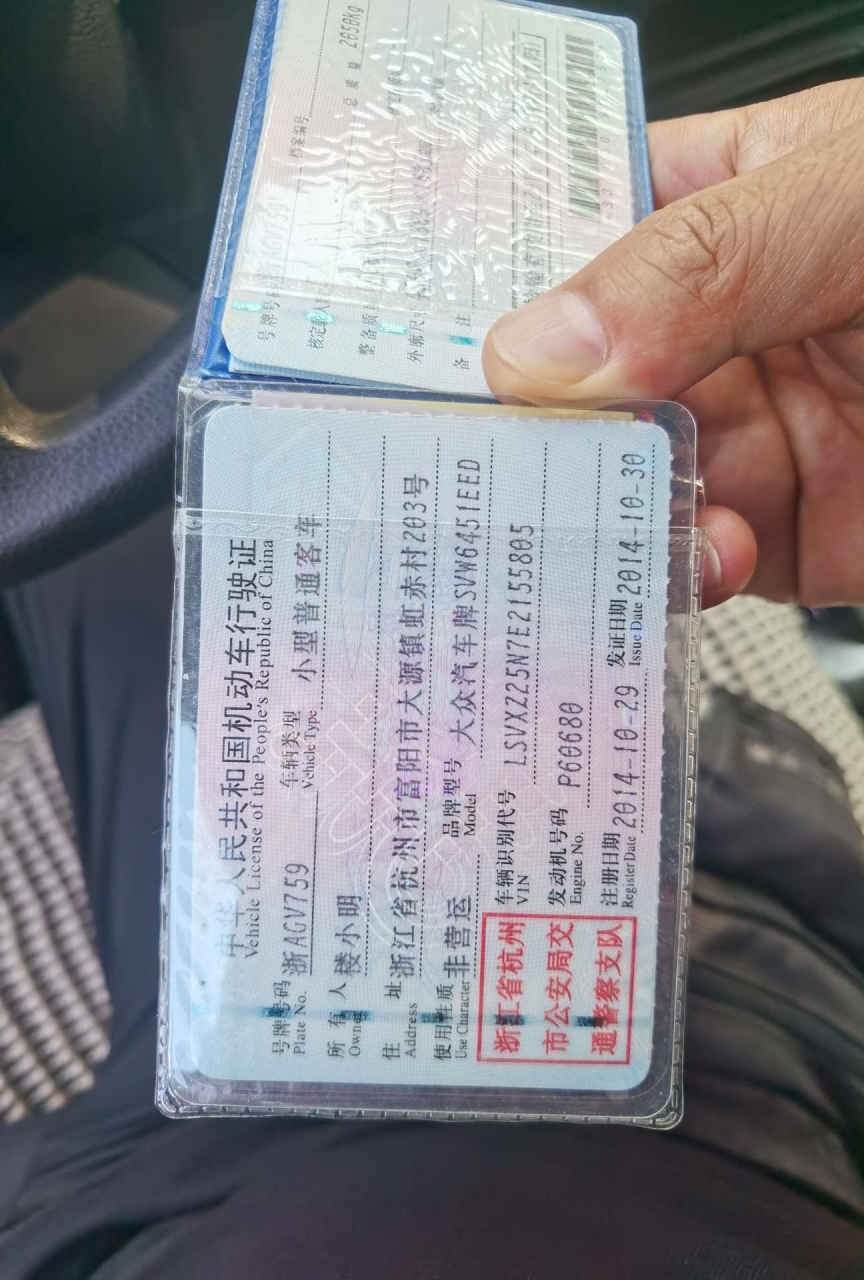 中华人民共和国机动车行驶证
Vehicle License of the People's Republic of China
号牌号码 浙AGV759 车辆类型 小型普通客车
Plate No. Vehicle Type
所有人 楼小明
Owner
住址 浙江省杭州市富阳市大源镇虹赤村203号
Address
使用性质 非营运 品牌型号 大众汽车牌SVW6451EED
Use Character Model
浙江省杭州
市公安局交
通警察支队
车辆识别代号 LSVXZ25N7E2155805
VIN
发动机号码 P60680
Engine No.
注册日期 2014-10-29 发证日期 2014-10-30
Register Date Issue Date
号牌号码 AGV759 档案编号
核定载人 总质量 2050kg
整备质
外廓尺
备注